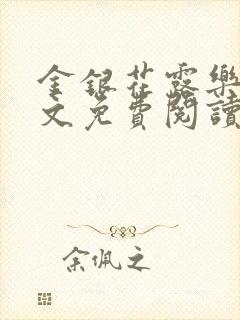 金银花露樂
文免費閱讀
余佩之